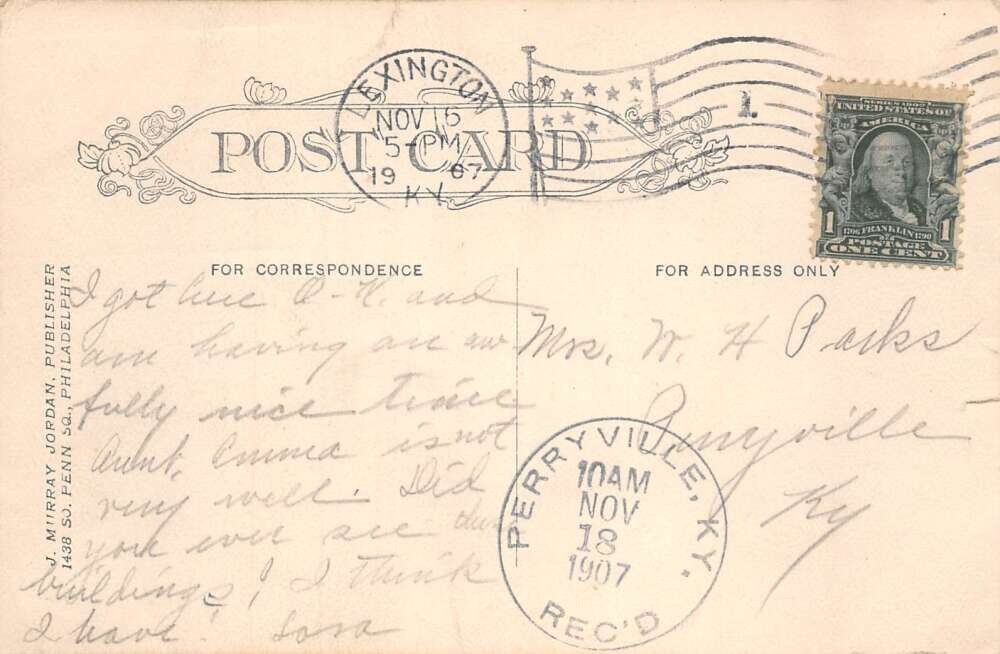 LEXINGTON
NOV 16
5-PM
19 07
KY.
1
POST CARD
SERIES 1902
UNITED STATES OF
AMERICA
1 1
1706 FRANKLIN 1790
POSTAGE
ONE CENT
J. MURRAY JORDAN, PUBLISHER
1438 SO. PENN SQ., PHILADELPHIA
FOR CORRESPONDENCE
I got here O-K. and
am having an aw
fully nice time
Aunt, Emma is not
very well. Did
you ever see these
buildings! I think
I have!
FOR ADDRESS ONLY
Mrs. W. H Parks
Ky
PERRYVILLE, KY.
10AM
NOV
18
1907
REC'D